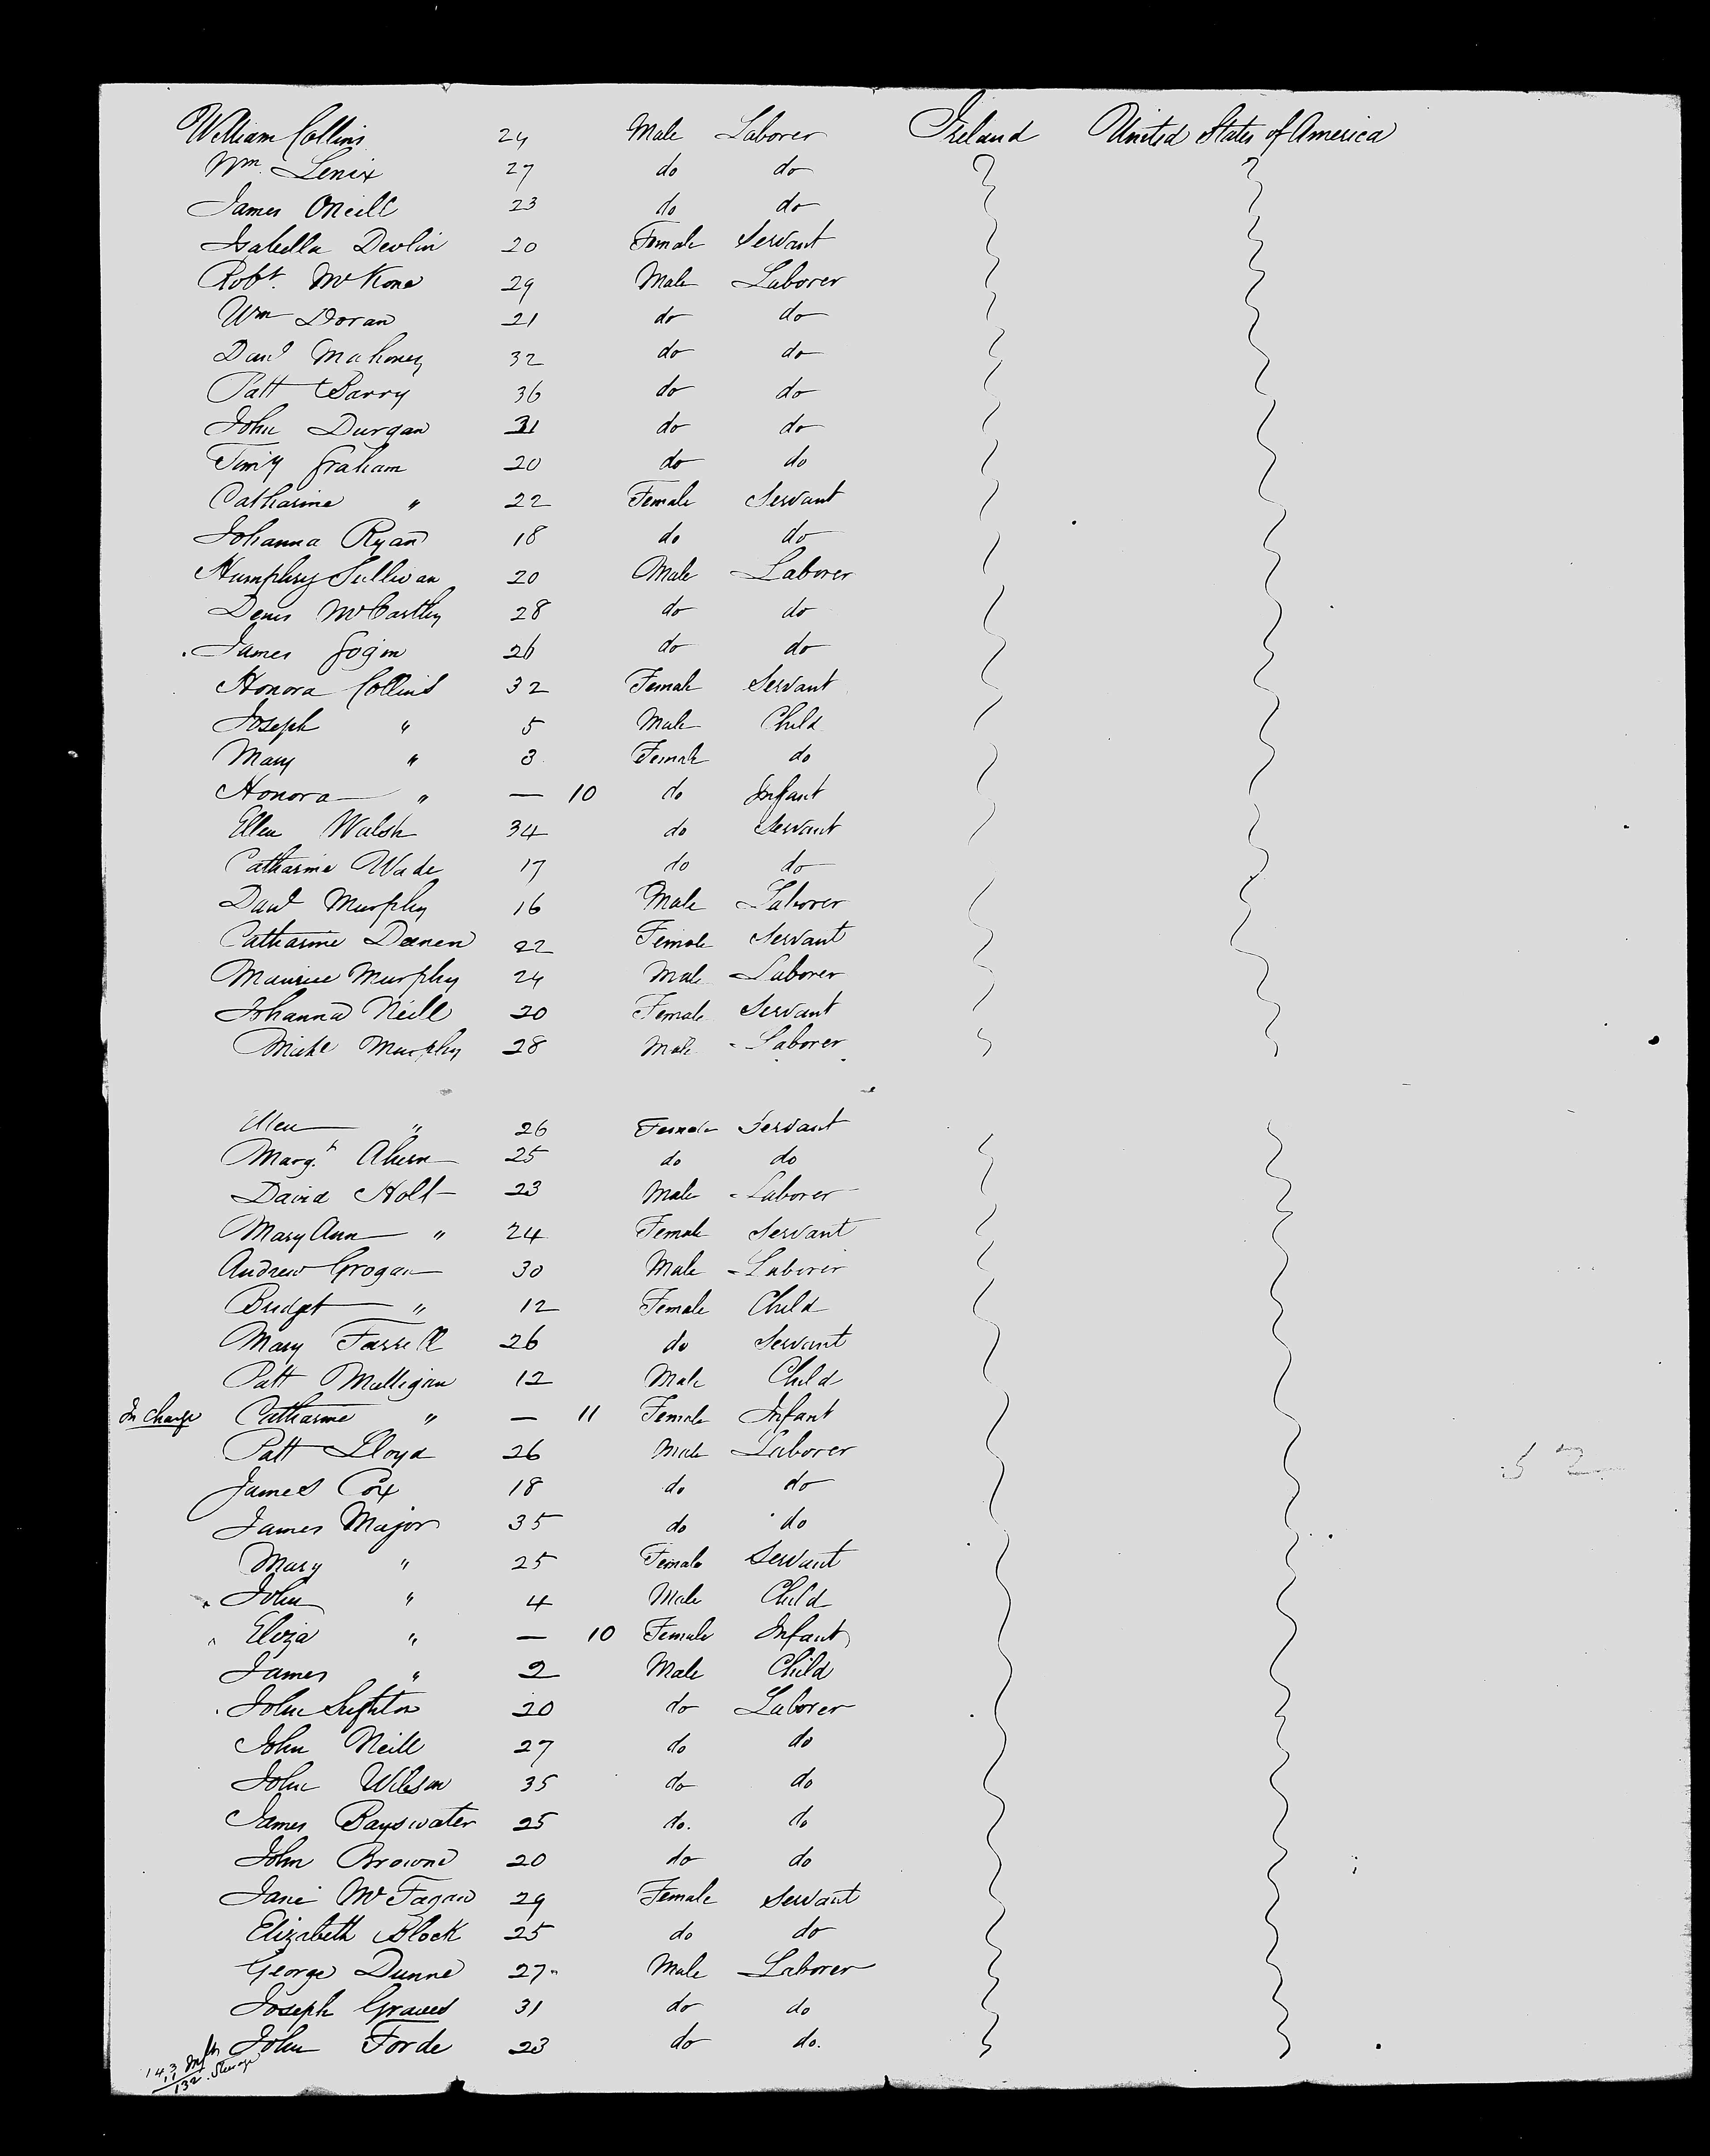 William Collins 24 Male Laborer Ireland United States of America
Wm. Lenix 27 do do
James ONeill 23 do do
Isabella Devlin 20 Female Servant
Robt. McKone 29 Male Laborer
Wm Doran 21 do do
Danl Mahoney 32 do do
Patt Barry 36 do do
John Durgan 31 do do
Timy Graham 20 do do
Catharine " 22 Female Servant
Johanna Ryan 18 do do
Humphry Sullivan 20 Male Laborer
Denis McCarthy 28 do do
James Gogin 26 do do
Honora Collins 32 Female Servant
Joseph " 5 Male Child
Mary " 3 Female do
Honora " — 10 do Infant
Ellen Walsh 34 do Servant
Catharine Wade 17 do do
Danl Murphy 16 Male Laborer
Catharine Deenen 22 Female Servant
Maurice Murphy 24 Male Laborer
Johanna Neill 20 Female Servant
Michl Murphy 28 Male Laborer
Ellen " 26 Female Servant
Margt. Ahern 25 do do
David Holt 23 Male Laborer
Mary Ann " 24 Female Servant
Andrew Grogan 30 Male Laborer
Bridget " 12 Female Child
Mary Farrell 26 do Servant
Patt Mulligan 12 Male Child
In charge Catharine " — 11 Female Infant
Patt Lloyd 26 Male Laborer
James Cox 18 do do
James Major 35 do do
Mary " 25 Female Servant
John " 4 Male Child
Eliza " — 10 Female Infant
James " 2 Male Child
John 20 do Laborer
John Neill 27 do do
John Wilson 35 do do
James Bayswater 25 do. do
John Browne 20 do do
Jane McFagan 29 Female Servant
Elizabeth Block 25 do do
George Dunne 27 Male Laborer
Joseph Graves 31 do do
John Forde 23 do do.
143
11 Infts
132 Steerage